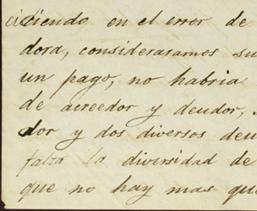 ciendo en el error de
dora, considerasemos su
un pago, no habria
de acreedor y deudor,
dor y dos diversos deu
falta la diversidad de
que no hay mas que